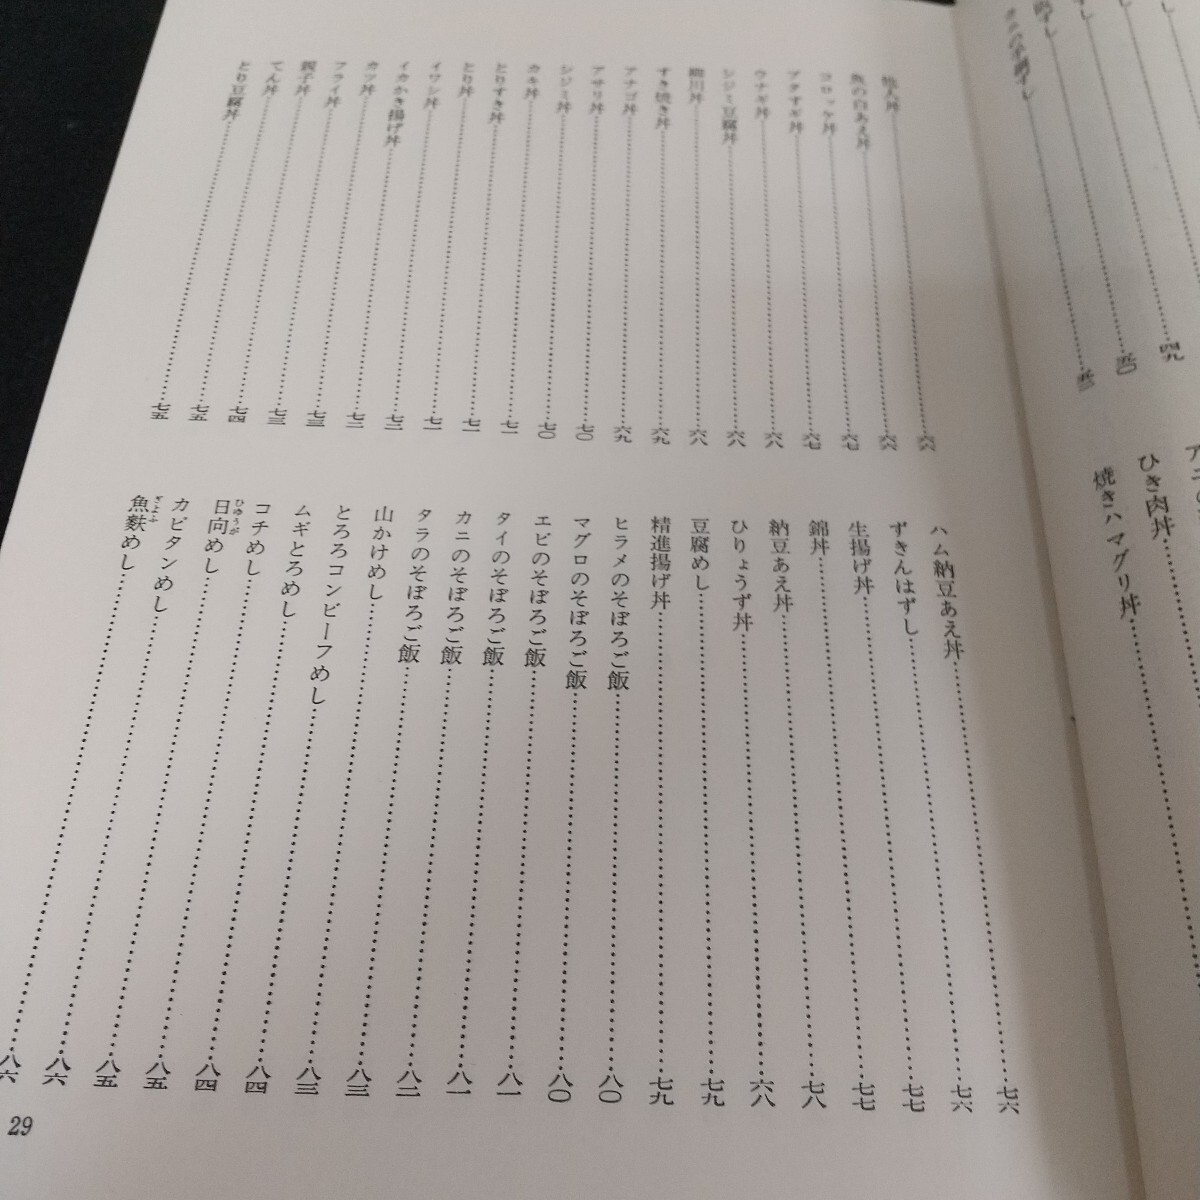 四九
五〇
ひき肉丼
焼きハマグリ丼
他人丼……六六
魚の白あえ丼……六六
コロッケ丼……六七
ブタすき丼……六七
ウナギ丼……六八
シジミ豆腐丼……六八
柳川丼……六八
すき焼き丼……六九
アナゴ丼……六九
アサリ丼……七〇
シジミ丼……七〇
カキ丼……七一
とりすき丼……七一
とり丼……七一
イワシ丼……七二
イカかき揚げ丼……七二
カツ丼……七三
フライ丼……七三
親子丼……七四
てん丼……七五
とり豆腐丼……七五
ハム納豆あえ丼……七六
ずきんはずし……七六
生揚げ丼……七七
錦丼……七七
納豆あえ丼……七八
ひりょうず丼……六八
豆腐めし……七九
精進揚げ丼……七九
ヒラメのそぼろご飯……八〇
マグロのそぼろご飯……八〇
エビのそぼろご飯……八一
タイのそぼろご飯……八一
カニのそぼろご飯……八二
タラのそぼろご飯……八三
山かけめし……八三
とろろコンビーフめし……八四
ムギとろめし……八四
コチめし……八五
日向めし……八五
ひゆうが
カピタンめし……八六
魚麩めし……八六
ぎよふ
29